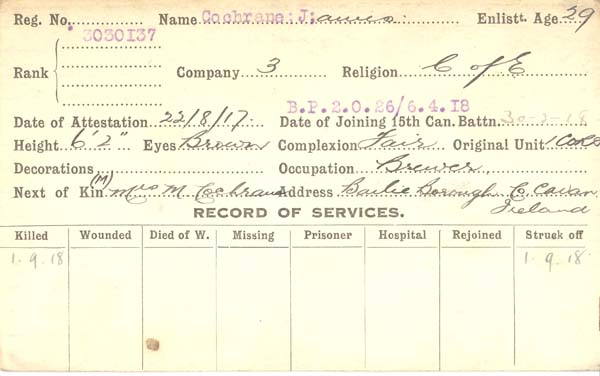 Reg. No. Name Cochrane: J; ames Enlistt. Age 29
3030137
Rank Company 3 Religion C of E
B.P.2.0.26/6.4.18
Date of Attestation 22/8/17. Date of Joining 15th Can. Battn.
Height 6'2" Eyes Brown Complexion Fair Original Unit 1 COR
Decorations Occupation Brewer
(M)
Next of Kin Mrs M. Cochrane Address Bailie Borough Co. Cavan
Ireland
RECORD OF SERVICES.
Killed Wounded Died of W. Missing Prisoner Hospital Rejoined Struck off
1.9.18 1.9.18